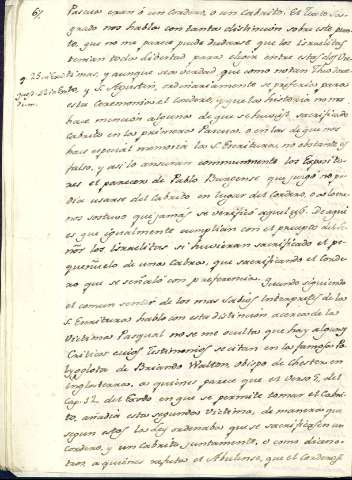 67
Pascua eran ô un cordero, o un cabrito. El Texto Sa-
grado nos habla con tanta distincion sobre este pun-
to, que no me parece pueda dudarse que los Israelitas
tenian toda libertad para elexir entre estas dos Vic-
timas, y aunque sea verdad que como notan Theodore-
to, y S. Agustin, ordinariamente se preferia para
esta Ceremonia el cordero, y que la historia no nos
hace mencion alguna de que se huviese sacrificado
Cabrito en las primeras Pascuas o en las de que nos
hace especial memoria la S. Escritura; no obstante es
falso, y asi lo aseguran communmente los Exposito-
res el parecer de Pablo Burgense que juzgó no po-
dia usarse del Cabrito en lugar del Cordero, o a lo me-
nos sostuvo que jamas se verificó aquel uso. De aqui
es que igualmente cumplian con el precepto del Se-
ñor los Israelitas si huvieran sacrificado el pe-
queñuelo de una Cabra, que sacrificando el Corde-
ro que se señaló con preferencia.
Quando siguiendo
el comun sentir de los mas sabios Interpretes de la
S. Escritura hablo con esta distincion acerca de la
Victima Pasqual no se me oculta que hay algunos
Criticos cuios Testimonios se citan en la famosa Po-
lyglota de Briando Walton, obispo de Chester en
Inglaterra, a quienes parece que el Verso 5. del
Cap. 12. del Exodo en que se permite tomar el Cabri-
to, añadia esta segunda Victima, de manera que
segun estos la Ley ordenaba que se sacrificasen un
Cordero, y un Cabrito juntamente, o como dicen o-
tros, a quienes refuta el Abulense, que el Cordero se